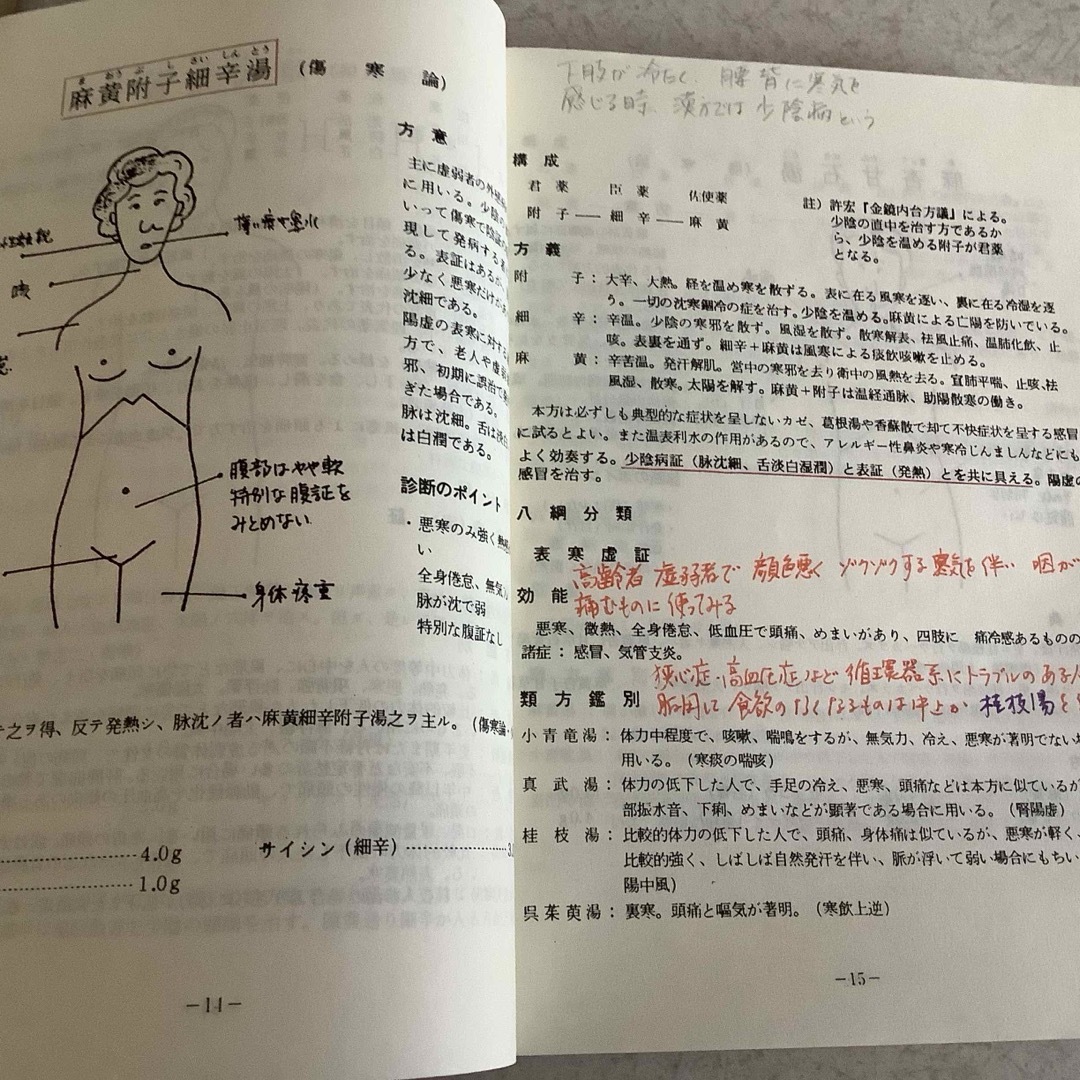 まおうぶしさいしんとう
麻黄附子細辛湯 (傷寒論)
方意
主に虚弱者の外感
に用いる。少陰
いって傷寒で陰証
現して発病する
る。表証はあるが
少なく悪寒だけが
沈細である。
陽虚の表寒に対する
方で、老人や虚弱
邪、初期に誤治で発
ぎた場合である。
脈は沈細。舌は淡白
は白潤である。
薄い痰や鼻水
咳
腹部はやや軟
特別な腹証を
みとめない
身体疼重
診断のポイント
・悪寒のみ強く熱感
い
全身倦怠、無気力
脈が沈で弱
特別な腹証なし
テ之ヲ得、反テ発熱シ、脈沈ノ者ハ麻黄細辛附子湯之ヲ主ル。(傷寒論・
4.0g サイシン(細辛) 3
1.0g
−14−
下肢が冷たく、腰背に寒気を
感じる時、漢方では少陰病という
構成
君薬 臣薬 佐使薬
附子──細辛──麻黄
註)許宏『金鏡内台方議』による。
少陰の直中を治す方であるか
ら、少陰を温める附子が君薬
となる。
方義
附子:大辛、大熱。経を温め寒を散ずる。表に在る風寒を逐い、裏に在る冷湿を逐
う。一切の沈寒錮冷の症を治す。少陰を温める。麻黄による亡陽を防いでいる。
細辛:辛温。少陰の寒邪を散ず。風湿を散ず。散寒解表、祛風止痛、温肺化飲、止
咳。表裏を通ず。細辛+麻黄は風寒による痰飲咳嗽を止める。
麻黄:辛苦温。発汗解肌。営中の寒邪を去り衛中の風熱を去る。宣肺平喘、止咳、祛
風湿、散寒。太陽を解す。麻黄+附子は温経通脉、助陽散寒の働き。
本方は必ずしも典型的な症状を呈しないカゼ、葛根湯や香蘇散で却て不快症状を呈する感冒
に試るとよい。また温表利水の作用があるので、アレルギー性鼻炎や寒冷じんましんなどにも
よく奏効する。少陰病証(脉沈細、舌淡白湿潤)と表証(発熱)とを共に具える。陽虚の
感冒を治す。
八綱分類
表寒虚証
高齢者 虚弱者で 顔色悪く ゾクゾクする寒気を伴い 咽が
痛むものに使ってみる
効能
悪寒、微熱、全身倦怠、低血圧で頭痛、めまいがあり、四肢に 痛冷感あるものの
諸症:感冒、気管支炎。
狭心症・高血圧症など循環器系にトラブルのある人
類方鑑別
服用して食欲のなくなるものは中止か 桂枝湯を
小青竜湯:体力中程度で、咳嗽、喘鳴をするが、無気力、冷え、悪寒が著明でない場
用いる。(寒痰の喘咳)
真武湯:体力の低下した人で、手足の冷え、悪寒、頭痛などは本方に似ているが
部振水音、下痢、めまいなどが顕著である場合に用いる。(腎陽虚)
桂枝湯:比較的体力の低下した人で、頭痛、身体痛は似ているが、悪寒が軽く、
比較的強く、しばしば自然発汗を伴い、脈が浮いて弱い場合にもちい
陽中風)
呉茱萸湯:裏寒。頭痛と嘔気が著明。(寒飲上逆)
−15−